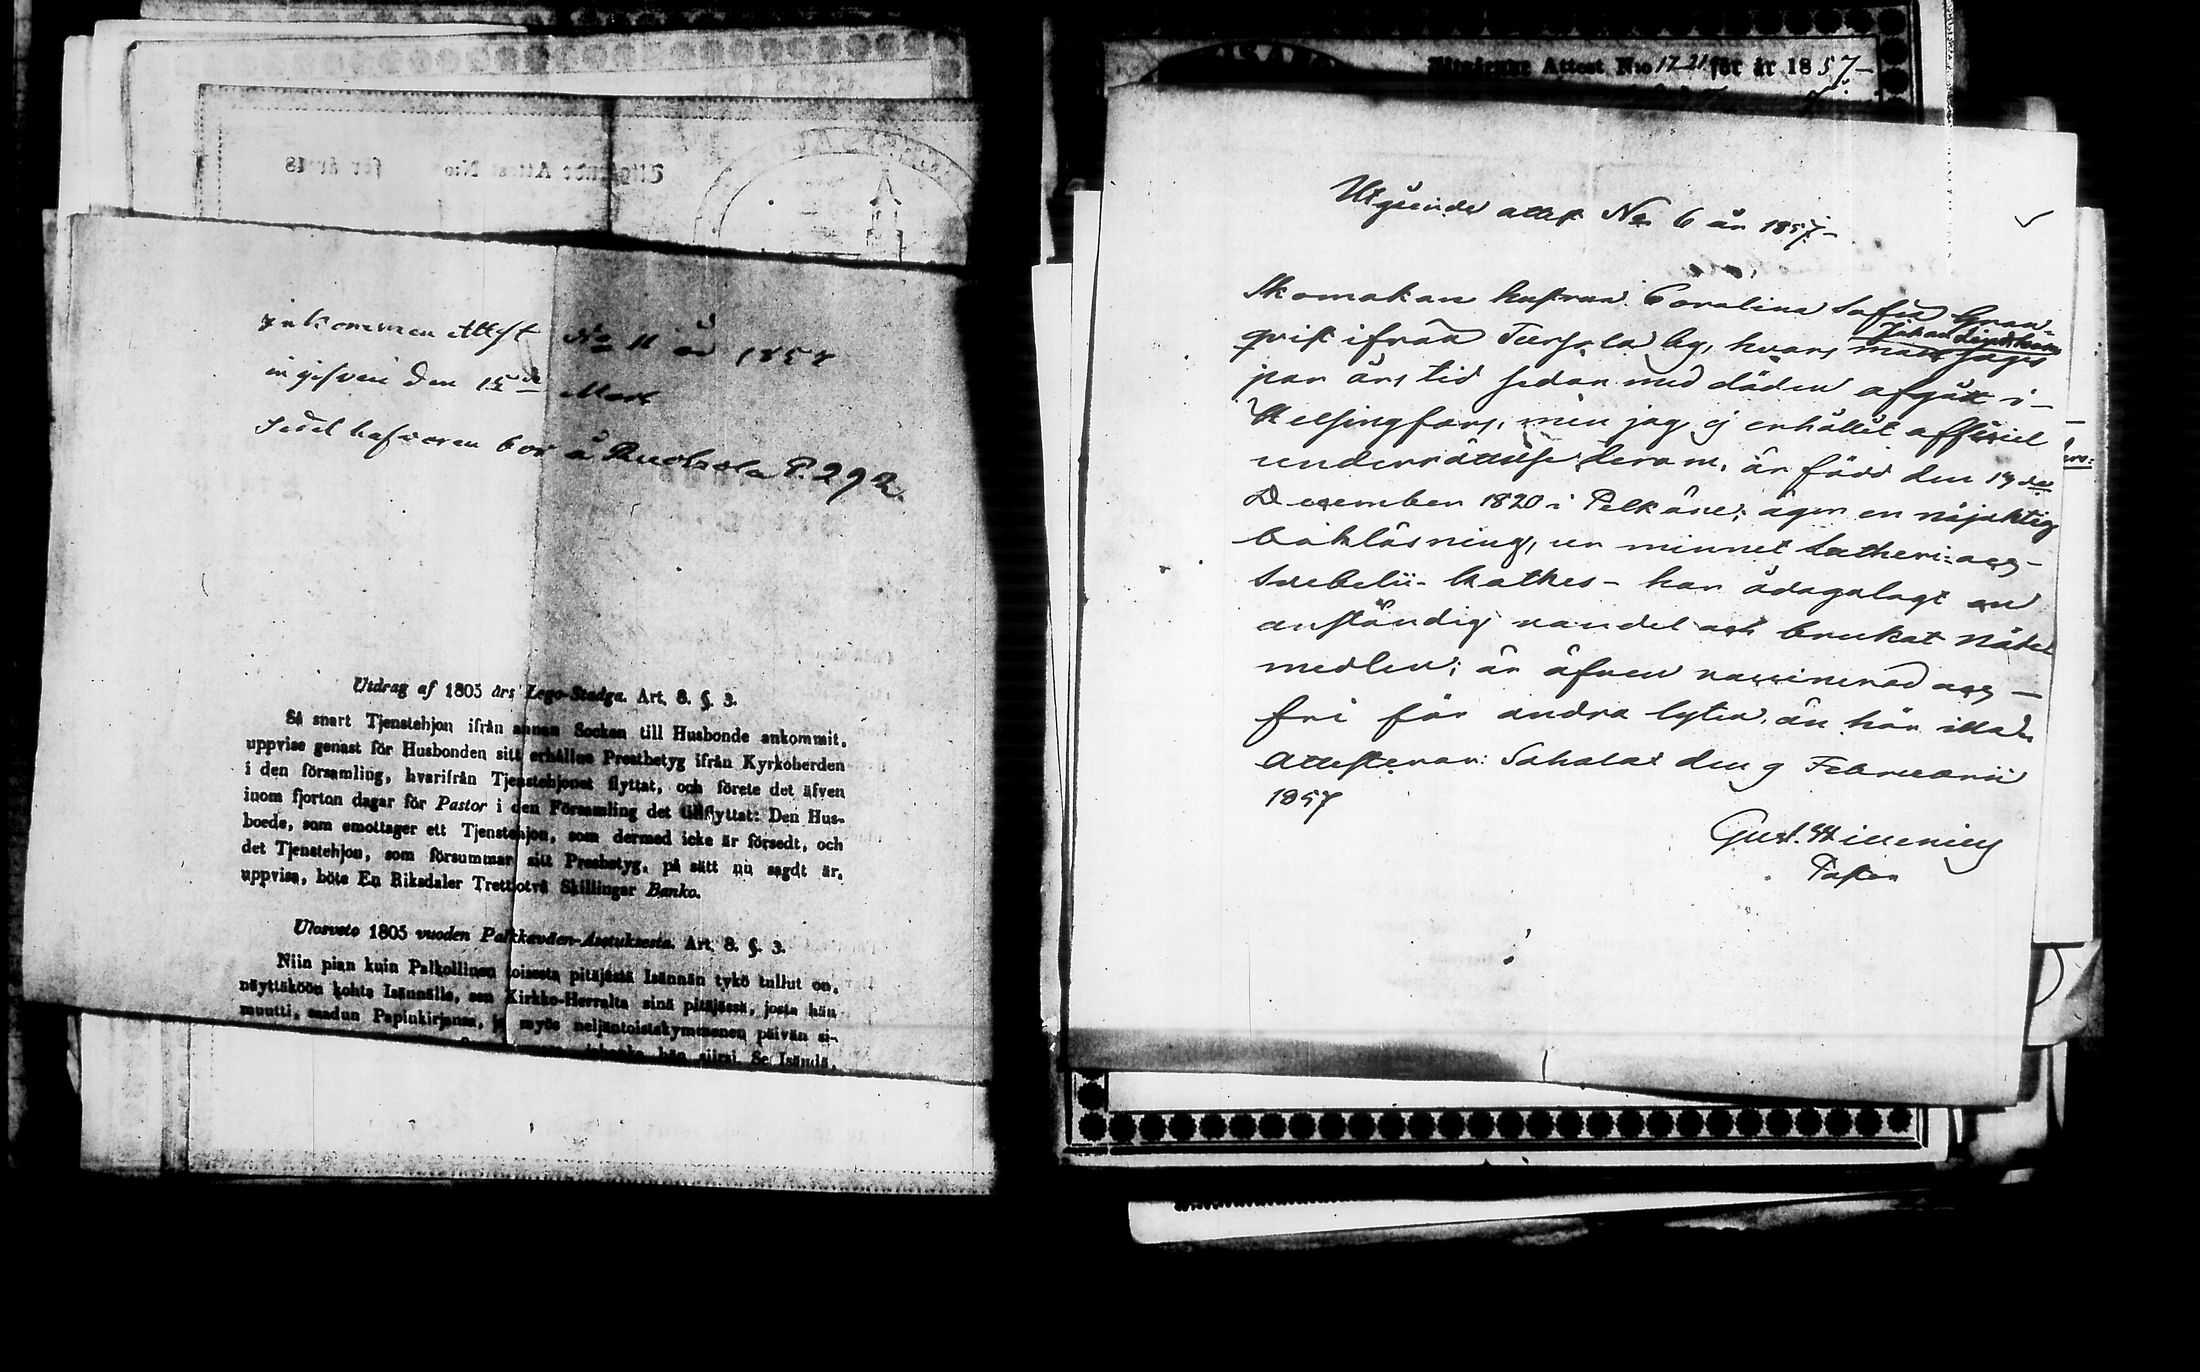 Utgående Attest N:o för år 18
inkommen Attest No 11 år 1857
ingifven den 15de Mars
Sedelhafvaren bor å Ruokola P. 292.
Utdrag af 1805 års Lego-Stadga. Art. 8. §. 3.
Så snart Tjenstehjon ifrån annan Socken till Husbonde ankommit,
uppvise genast för Husbonden sitt erhållne Prestbetyg ifrån Kyrkoherden
i den församling, hvarifrån Tjenstehjonet flyttat, och förete det äfven
inom fjorton dagar för Pastor i den Församling det tillflyttat: Den Hus-
bonde, som emottager ett Tjenstehjon, som dermed icke är försedt, och
det Tjenstehjon, som försummar sitt Presbetyg, på sätt nu sagdt är,
uppvisa, böte En Riksdaler Trettiotvå Skillingar Banko.
Ulosveto 1805 vuoden Palkkaväen-Asetuksesta. Art. 8. §. 3.
Niin pian kuin Palkollinen toisesta pitäjästä Isännän tykö tullut on,
näyttäköön kohta Isännälle, sen Kirkko-Herralta sinä pitäjässä, josta hän
muutti, saadun Papinkirjansa, ja myös neljäntoistakymmenen päivän si-
hän siirsi. Se Isäntä,
Utgående Attest N:o 17-21 för år 1857.-
Utgående attest No 6 år 1857.-
Skomakare hustrun Carolina Sofia Gran-
Johan Lindstrœm
qvist ifrån Tursola by, hvars man säges
par års tid sedan med döden afgått i-
Helsingfors, men jag ej erhållit officiel
underrättelse derom, är född den 19de
December 1820 i Pelkäne; äger en nöjaktig
bokläsning, ur minnet Lutheri: acg-
Svebelii- kathes- har ådagalagt en
anständig vandel och brukat nåde
medlen; är äfven vaccinerad acg -
fri för andra lyten, än hör illa.
Attesterar: Sahalax den 9 Februarii
1857
Gust. Hillenius
Pastor